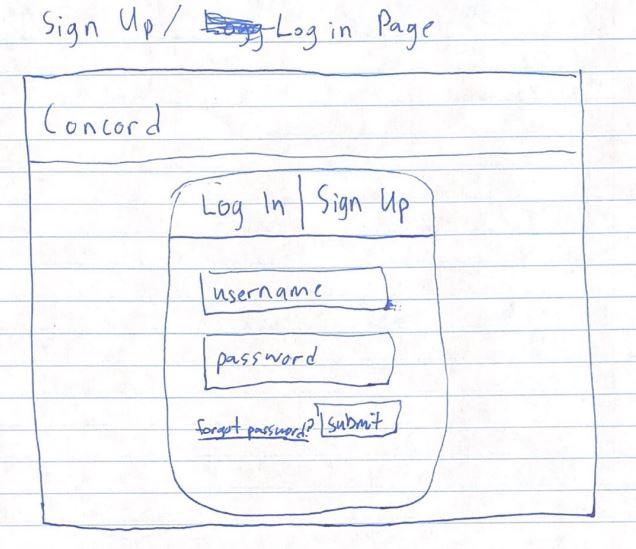 Sign Up/ Log in Page
Concord
Log In | Sign Up
username
password
forgot password? submit